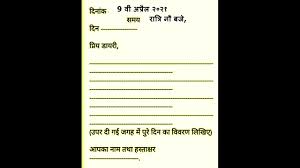 दिनांक 9 वी अप्रेल २०२१
समय रात्रि नौ बजे,
दिन ---------------
प्रिय डायरी,
(उपर दी गई जगह में पूरे दिन का विवरण लिखिए)
आपका नाम तथा हस्ताक्षर